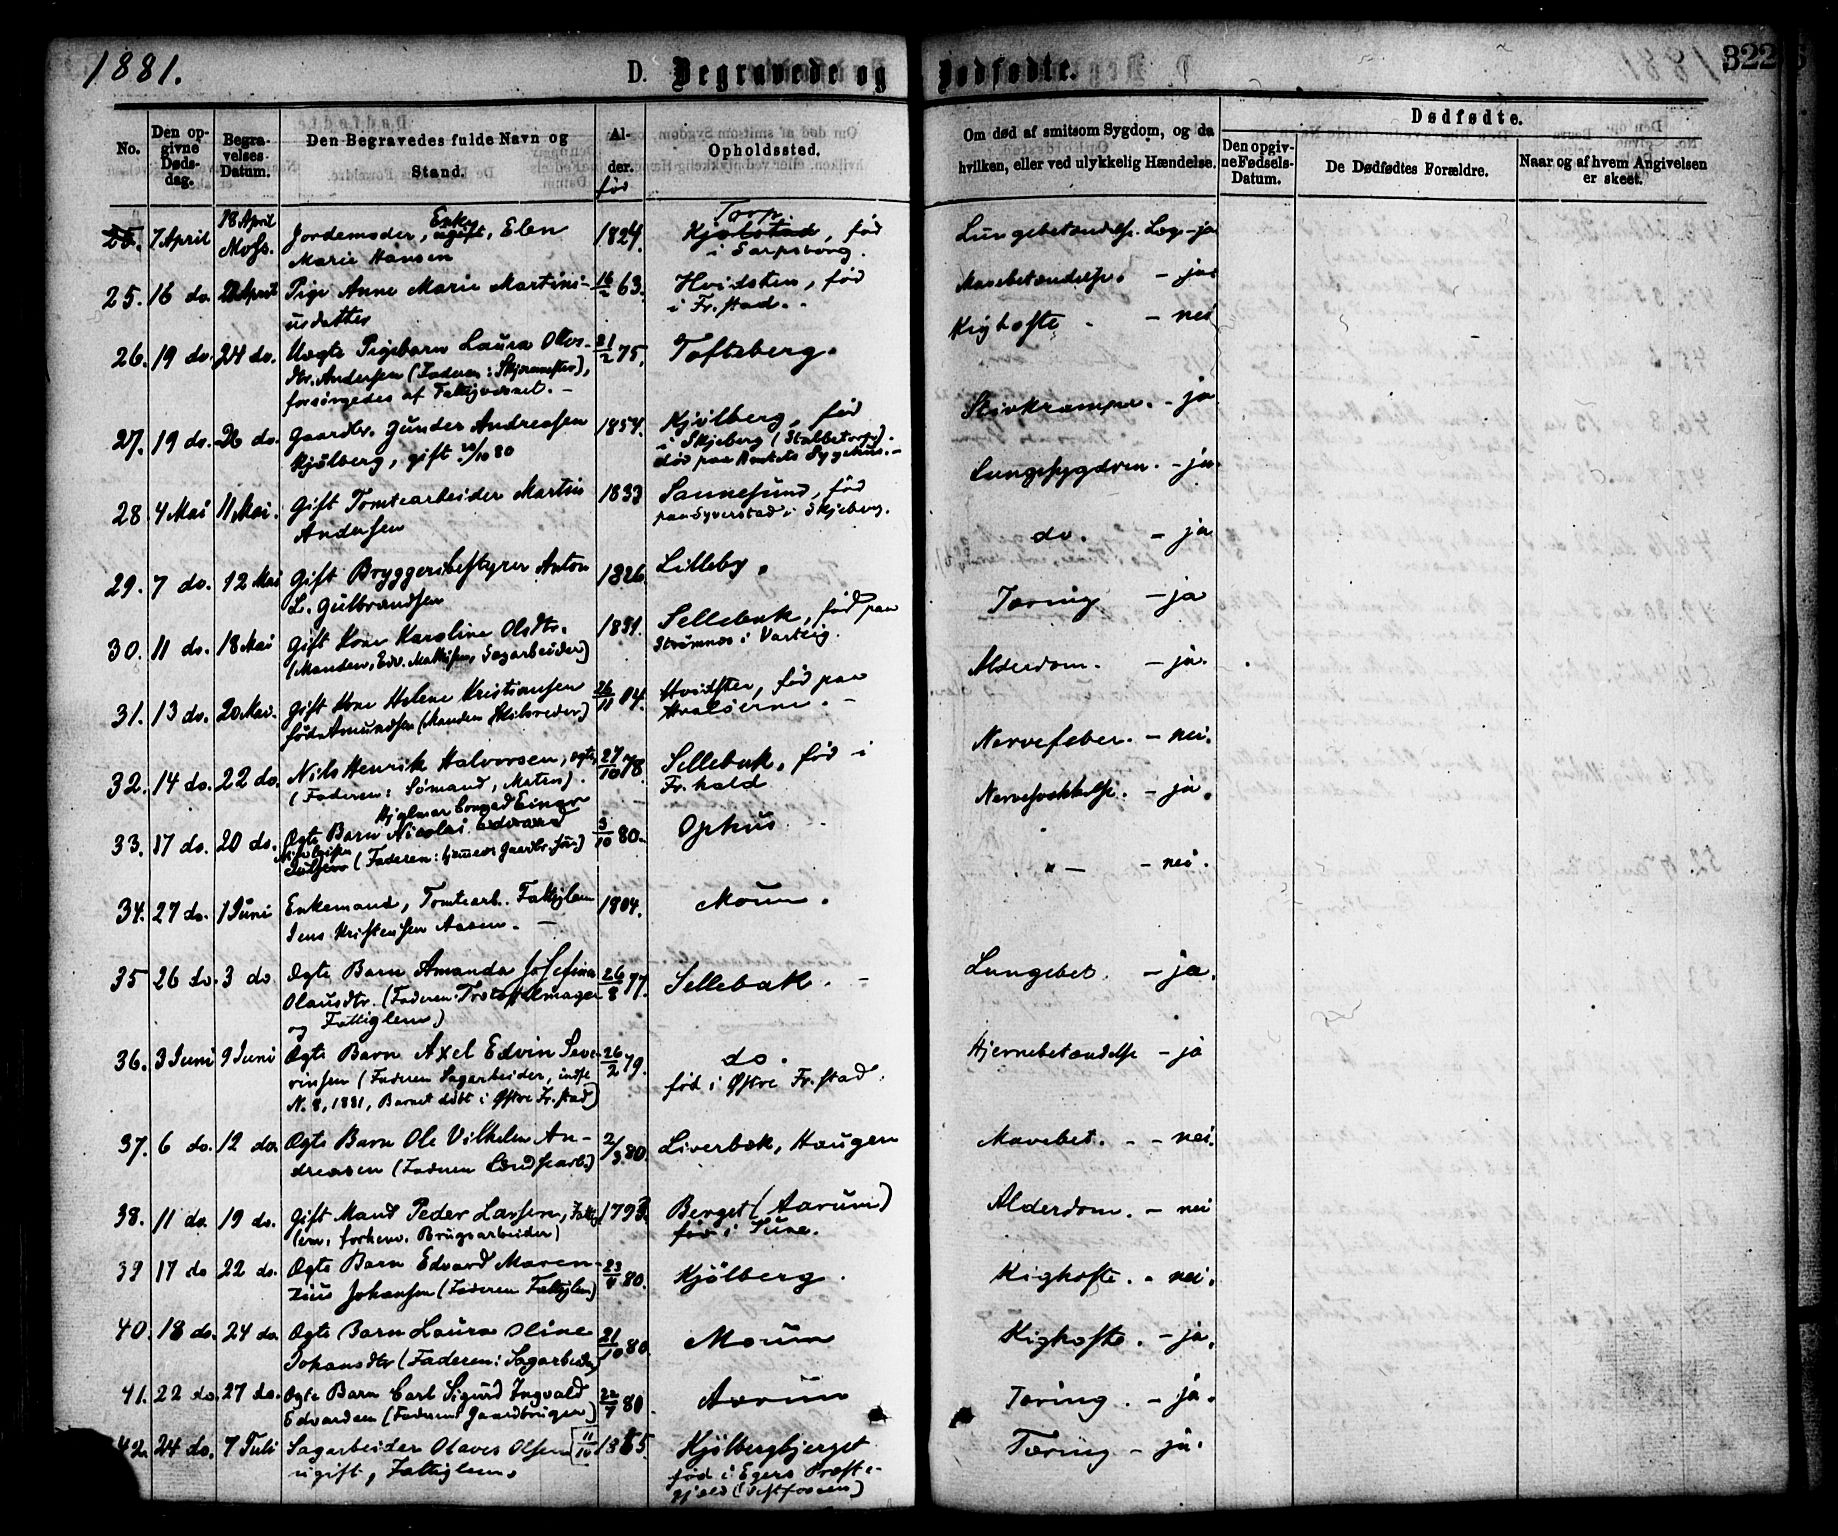 1881.
D. Begravede og Dødfødte.
322
No.
Den opgivne Dødsdag.
Begravelses-Datum.
Den Begravedes fulde Navn og Stand.
Alder.
før
Opholdssted.
Om død af smitsom Sygdom, og da hvilken, eller ved ulykkelig Hændelse.
Dødfødte.
Den opgivne Fødsels-Datum.
De Dødfødtes Forældre.
Naar og af hvem Angivelsen er skeet.
7 April 18 April Moss. Jordemoder, Enke ugift, Elen 1824. Torp Kjølstad, fød Lungebetændelse. Læg - ja
Marie Hansen i Sarpsborg.
25. 16 do. April Pige Anne Marie Martini- 16/2 63. Hvidsten, fød Mavebetændelse. - ja
usdatter i Fr.stad.
26. 19 do. 24 do. Uægte Pigebarn Laura Olers- 21/2 75. Tofteberg. Kighoste - nei
dtr. Andersen (Faderen: Skjærmester),
forsørgedes af Fattigvæsnet. -
27. 19 do. 26 do. Gaardbr. Gunder Andreasen 1854. Kjølberg, fød Stivkrampe. - ja
Kjølberg, gift /10 80 i Skjeberg (Stalbetorp).
død paa Amtets Sygehus. -
28. 4 Mai 11 Mai. Gift Tomtearbeider Martin 1833 Sannesund, fød Lungesygdom. - ja.
Andersen paa Syverstad i Skjeberg.
29. 7 do. 12 Mai Gift Bryggeribestyrer Anton 1826. Lilleby. do. - ja
L. Gulbrandsen
30. 11 do. 18 Mai Gift Kone Karoline Olsdtr. 1831. Sellebak, fød paa Tæring - ja
(Manden, Edv. Mathisen, Sagarbeider) Strømnes i Varteig.
31. 13 do. 20 Mai. Gift Kone Helene Kristiansen 26/11 04. Hvidsten, fød paa Alderdom. - ja.
født Amundsen (Manden Skibsreder) Hvaløerne. -
32. 14 do. 22 do. Nils Henrik Halvorsen, ægte, 27/10 78. Sellebak, fød i Nervefeber. - nei.
(Faderen: Sømand, Maten). Fr.hald
Hjalmar Conrad Einar
33. 17 do. 20 do. Ægte Barn Nicolai Edvard 3/10 80. Ophus Nervesvækkelse. - ja.
(Faderen: hjemeds Gaardbr. søn)
34. 27 do. 1 Juni Enkemand, Tomtearb. Fattiglem 1804. Moum. " - - nei.
Jens Kristensen Aasen. -
35 26 do. 3 do Ægte Barn Amanda Josefina 26/8 77. Sellebak. - Lungebet. - ja.
Olausdtr. (Faderen: Trotøffelmager
og Fattiglem)
36. 3 Juni 9 Juni Ægte Barn Axel Edvin Seve- 26/2 79. do. Hjernebetændelse - ja
rinsen (Faderen Sagarbeider, indfl. fød i Østre Fr.stad.
N. 8, 1881, Barnet døbt i Østre Fr.stad)
37. 6 do. 12 do. Ægte Barn Ole Vilhelm An- 2/3 80. Liverbæk, Haugen Mavebet. - - nei.
dreasen (Faderen Landhearb.)
38. 11 do. 19 do. Gift Mand Peder Larsen, Fattig 1793. Berget (Aarum) Alderdom. - nei
lem, forhenv. Brugsarbeider) fød i Tune.
39 17 do 22 do. Ægte Barn Edvard Maren- 23/4 80. Kjölberg. Kighoste. - nei.
tius Johansen (Faderen Fattiglem)
40. 18 do. 24 do Ægte Barn Laura Oline 21/10 80. Moum Kighoste. - ja.
Johansdtr (Faderen: Sagarbeider)
41. 22 do. 27 do. Ægte Barn Carl Sigurd Ingvald 22/7 80. Aarum Tæring. - ja.
Edvardsen (Faderen Gaardbruger)
42. 24 do. 7 Juli Sagarbeider Olaves Olsen 11/10 1865. Kjölbergbjerget Tæring - ja.
ugift, Fattiglem. fød i Egers Præste-
gjæld (Vestfossen)